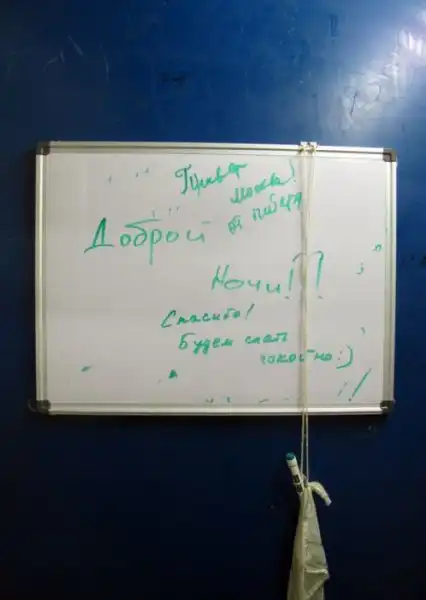 Привет
Москва!
Доброй
Ночи!
Спасибо!
Будем спать
спокойно :)